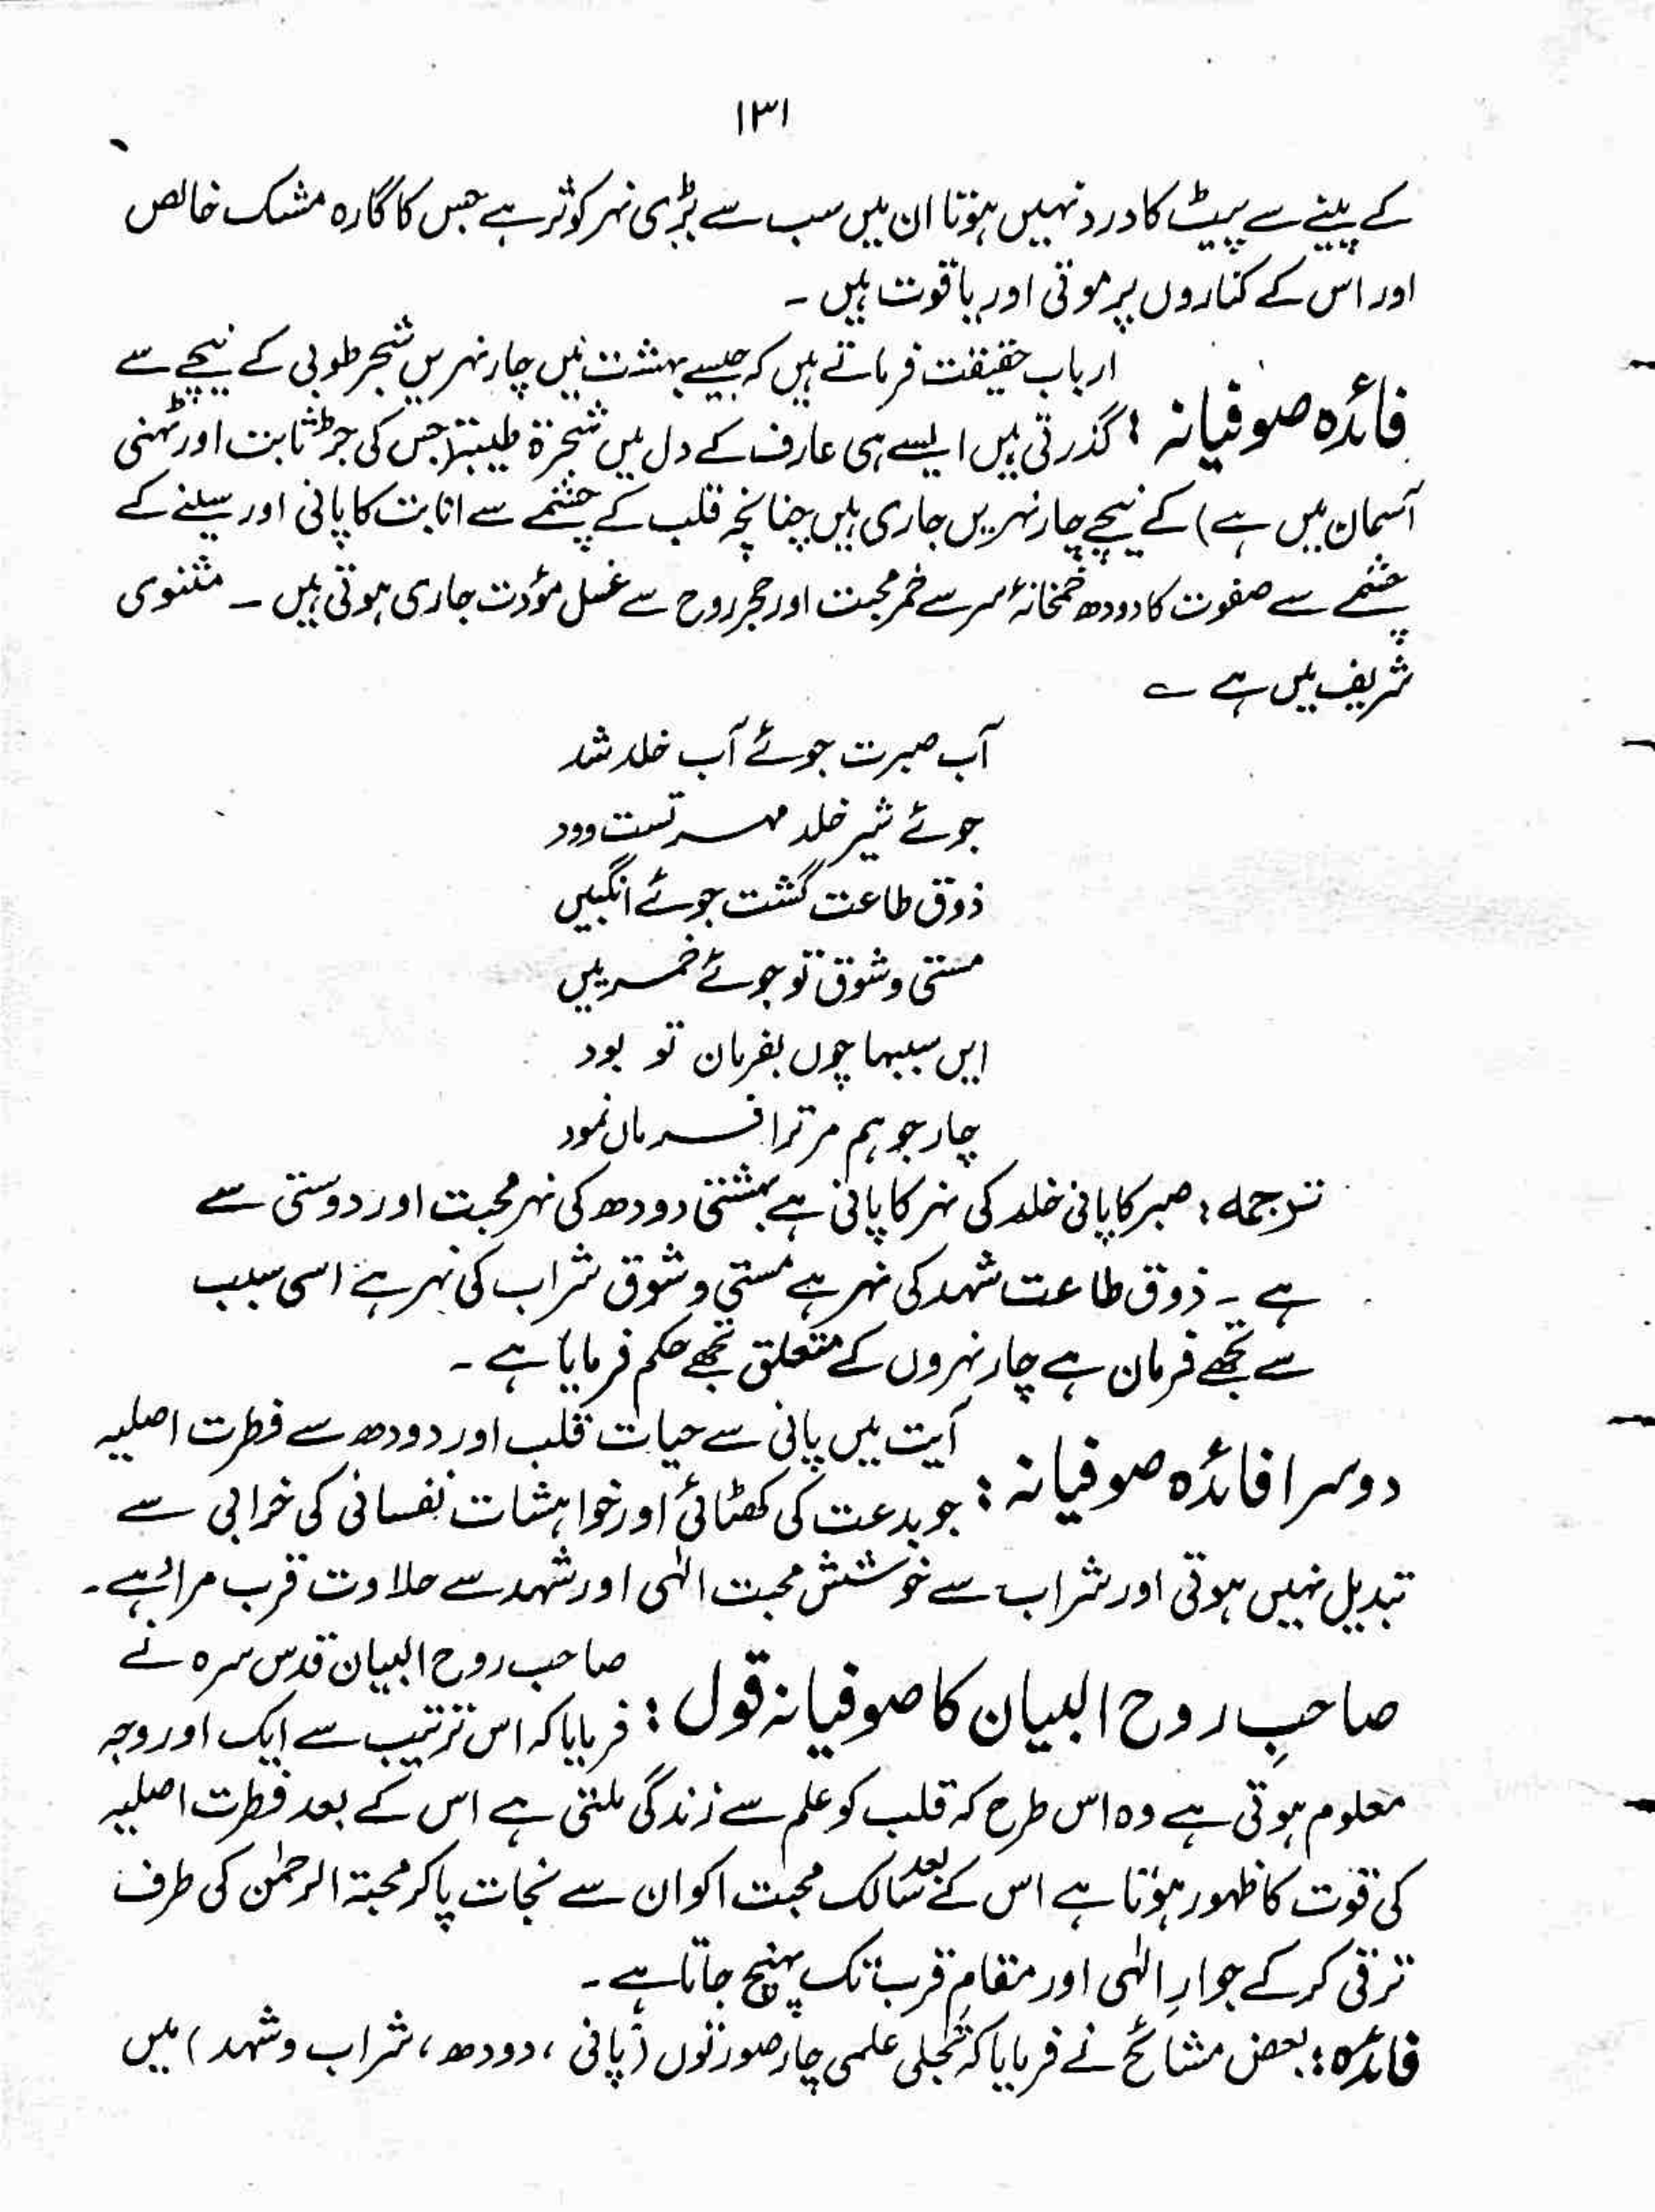 ۱۳۱
کے پینے سے پیٹ کا درد نہیں ہوتا ان میں سب سے بڑی نہر کوثر ہے جس کا گارہ مشک خالص
اور اس کے کناروں پر موتی اور یاقوت ہیں ۔
فائدہ صوفیانہ : ارباب حقیقت فرماتے ہیں کہ جیسے بہشت میں چار نہریں شجر طوبی کے نیچے سے
گذرتی ہیں ایسے ہی عارف کے دل میں شجرۃ طیبۃ (جس کی جڑ ثابت اور ٹہنی
آسمان میں ہے) کے نیچے چار نہریں جاری ہیں چنانچہ قلب کے چشمے سے انابت کا پانی اور سینے کے
چشمے سے صفوت کا دودھ خمخانۂ سر سے خمر محبت اور حجر روح سے عسل مؤدت جاری ہوتی ہیں ۔ مثنوی
شریف میں ہے ؎
آب صبرت جوئے آب خلد شد
جوئے شیر خلد مہر تست و ود
ذوق طاعت گشت جوئے انگبیں
مستی و شوق تو جوئے خمر بیں
ایں سببہا چوں بفرمان تو بود
چار جو ہم مر ترا فرماں نمود
ترجمہ : صبر کا پانی خلد کی نہر کا پانی ہے بہشتی دودھ کی نہر محبت اور دوستی سے
ہے ۔ ذوق طاعت شہد کی نہر ہے مستی و شوق شراب کی نہر ہے اسی سبب
سے تجھے فرمان ہے چار نہروں کے متعلق تجھے حکم فرمایا ہے ۔
دوسرا فائدہ صوفیانہ : آیت میں پانی سے حیات قلب اور دودھ سے فطرت اصلیہ
جو بدعت کی کھٹائی اور خواہشات نفسانی کی خرابی سے
تبدیل نہیں ہوتی اور شراب سے خوشش محبت الٰہی اور شہد سے حلاوت قرب مراد ہے ۔
صاحبِ روح البیان کا صوفیانہ قول : صاحب روح البیان قدس سرہ نے
فرمایا کہ اس ترتیب سے ایک اور وجہ
معلوم ہوتی ہے وہ اس طرح کہ قلب کو علم سے زندگی ملتی ہے اس کے بعد فطرت اصلیہ
کی قوت کا ظہور ہوتا ہے اس کے بعد سالک محبت اکوان سے نجات پا کر محبۃ الرحمٰن کی طرف
ترقی کر کے جوارِ الٰہی اور مقامِ قرب تک پہنچ جاتا ہے ۔
فائدہ : بعض مشائخ نے فرمایا کہ تجلی علمی چار صورتوں (پانی ، دودھ ، شراب و شہد) میں